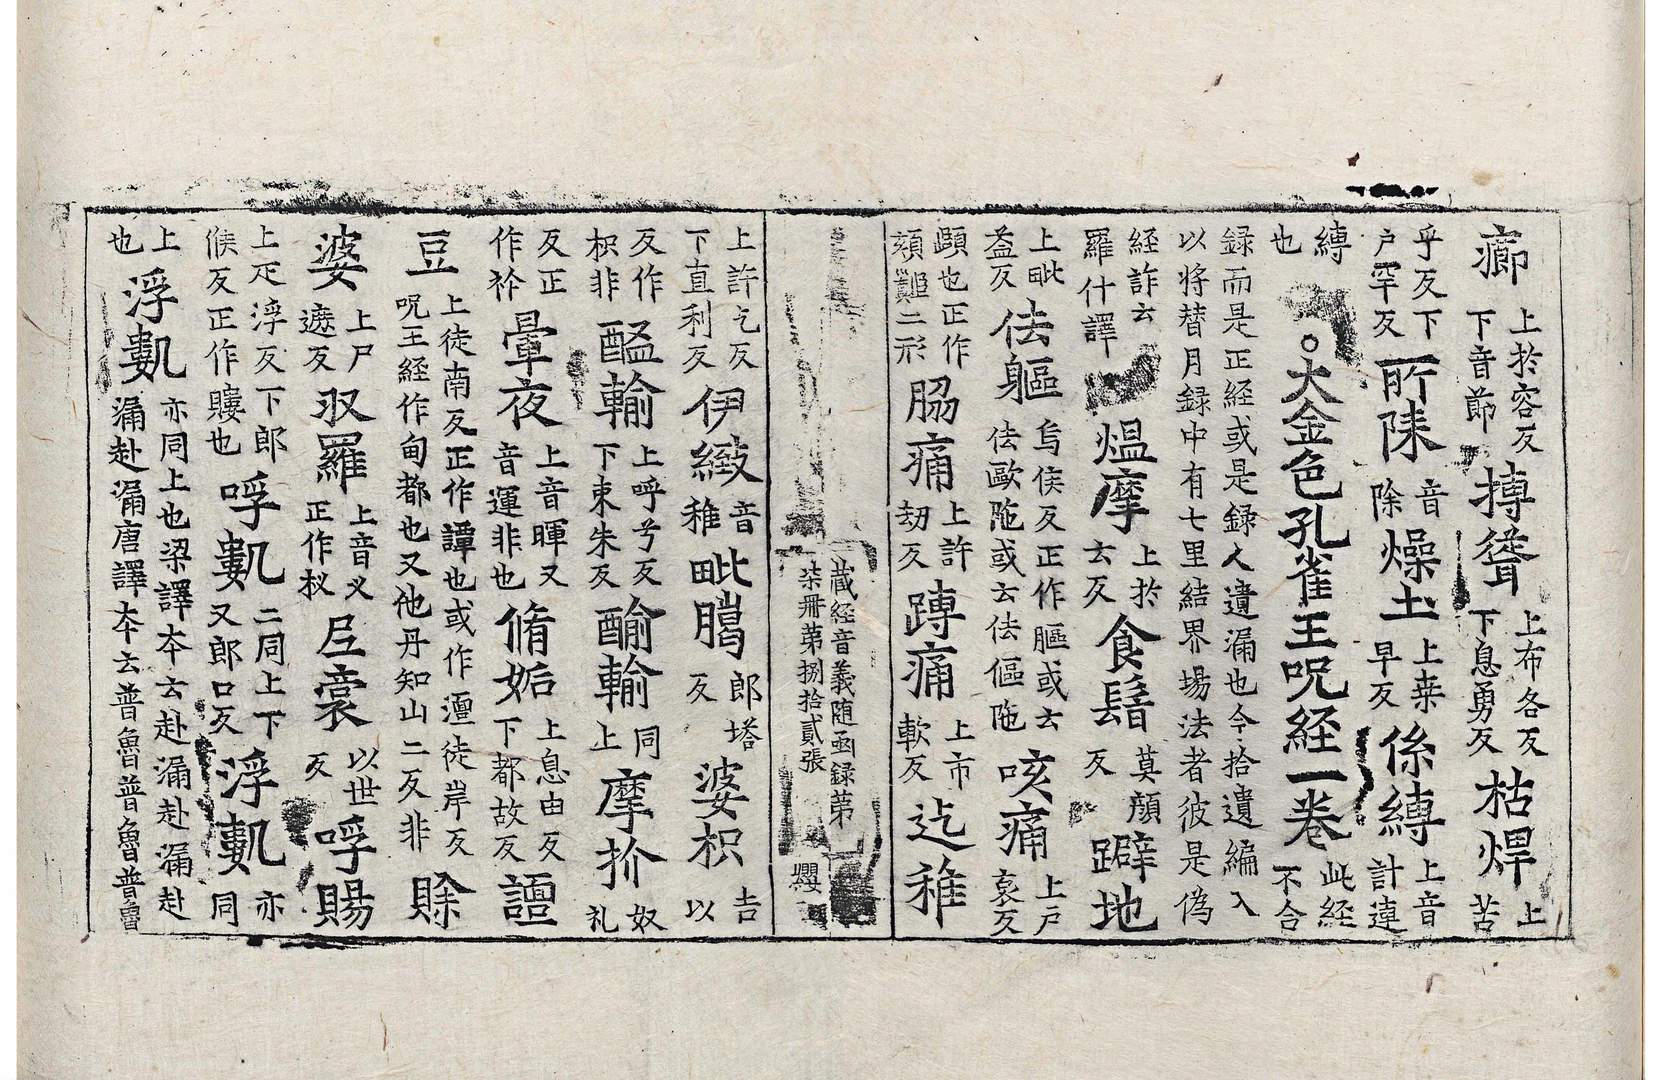 癤上於容反下音節搏聳上布各反下息勇反枯焊上苦
乎反下戶罕反所陳音除燥土上桒早反係縛上音計連
縛也。大金色孔雀王呪経一卷此経不合
録而是正経或是録人遺漏也今拾遺編入
以將替月録中有七里結界場法者彼是偽
経詐云羅什譯熅摩上於云反食鬘莫顏反躃地
上毗益反佉軀烏侯反正作膒或云佉歐陁或云佉傴陁咳痛上戶哀反
顋也正作頬難二形脇痛上許刼反蹲痛上市軟反迄稚
上許乞反下直利反伊緻音稚毗臈郎塔反婆枳吉以
反作枳非醯輸上呼兮反下束朱反醯輸同上摩扴奴礼
反正作祄暈夜上音暉又音運非也脩姤上息由反下都故反譠
豆上徒南反正作譚也或作澶徒岸反呪王經作甸都也又他丹知山二反非賖
婆上尸遮反㕛羅上音义正作杈𡰱裳以世反呼賜
上疋浮反下郎侯反正作𧸖也呼數二同上下又郎口反浮數亦同
上也浮數亦同上也梁譯夲云赴漏赴漏赴漏赴漏唐譯夲云普魯普魯普魯
蔵経音義随函録第柒冊第捌拾貳張 纓